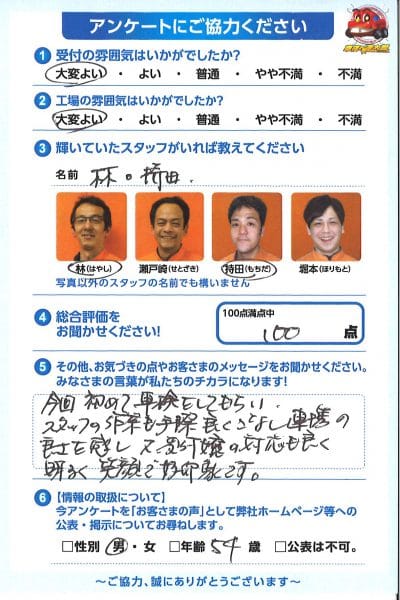 アンケートにご協力ください
1 受付の雰囲気はいかがでしたか?
大変よい ・ よい ・ 普通 ・ やや不満 ・ 不満
2 工場の雰囲気はいかがでしたか?
大変よい ・ よい ・ 普通 ・ やや不満 ・ 不満
3 輝いていたスタッフがいれば教えてください
名前 林。持田.
林(はやし) 瀬戸崎(せとざき) 持田(もちだ) 堀本(ほりもと)
写真以外のスタッフの名前でも構いません
4 総合評価を
お聞かせください!
100点満点中
100 点
5 その他、お気づきの点やお客さまのメッセージをお聞かせください。
みなさまの言葉が私たちのチカラになります!
今回初めて車検をしてもらい.
スタッフの作業も手際良くこなし連携の
良さを感じ 又 嬢の対応も良く
明るく笑顔で好印象です。
6 【情報の取扱について】
今アンケートを「お客さまの声」として弊社ホームページ等への
公表・掲示についてお尋ねします。
□性別 男・女 □年齢 54 歳 □公表は不可。
~ご協力、誠にありがとうございます~